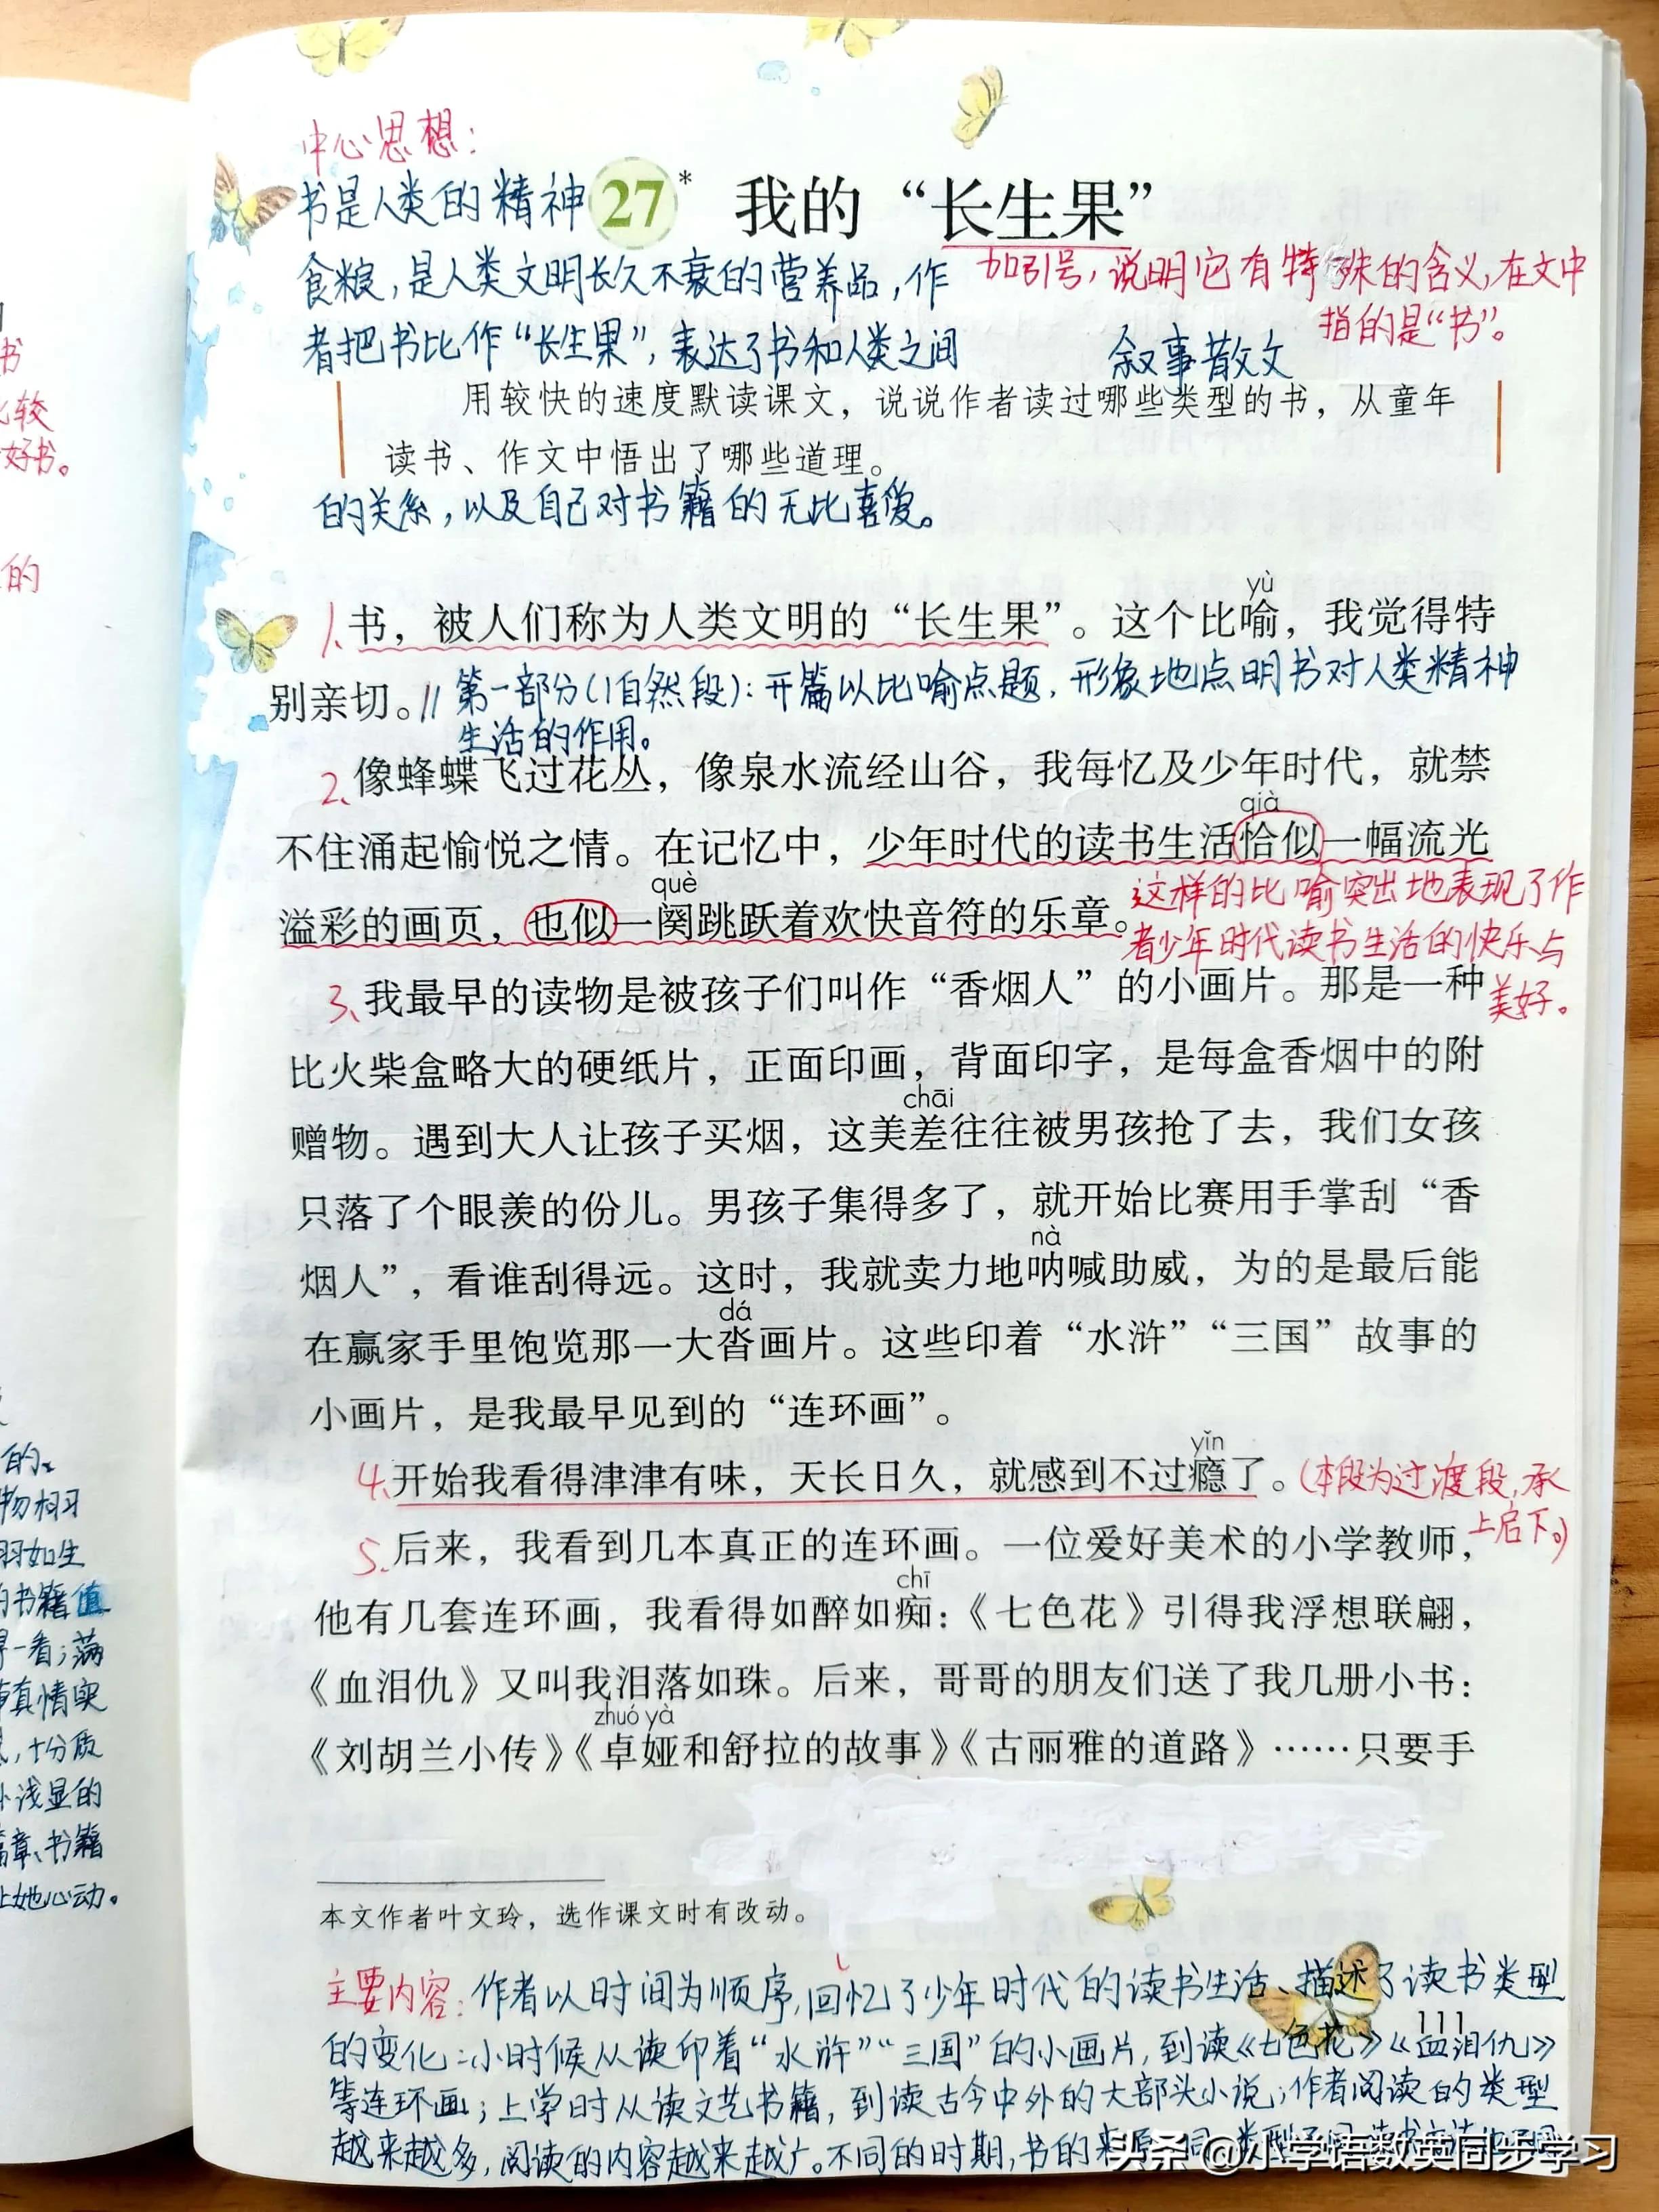 中心思想：
书是人类的精神 27* 我的“长生果”
食粮，是人类文明长久不衰的营养品，作
加引号，说明它有特殊的含义，在文中
指的是“书”。
者把书比作“长生果”，表达了书和人类之间
叙事散文
用较快的速度默读课文，说说作者读过哪些类型的书，从童年
读书、作文中悟出了哪些道理。
的关系，以及自己对书籍的无比喜爱。
yù
1、书，被人们称为人类文明的“长生果”。这个比喻，我觉得特
别亲切。// 第一部分（1自然段）：开篇以比喻点题，形象地点明书对人类精神
生活的作用。
2、像蜂蝶飞过花丛，像泉水流经山谷，我每忆及少年时代，就禁
qià
不住涌起愉悦之情。在记忆中，少年时代的读书生活恰似一幅流光
què
溢彩的画页，也似一阕跳跃着欢快音符的乐章。
这样的比喻突出地表现了作
者少年时代读书生活的快乐与
美好。
3、我最早的读物是被孩子们叫作“香烟人”的小画片。那是一种
比火柴盒略大的硬纸片，正面印画，背面印字，是每盒香烟中的附
chāi
赠物。遇到大人让孩子买烟，这美差往往被男孩抢了去，我们女孩
只落了个眼羡的份儿。男孩子集得多了，就开始比赛用手掌刮“香
nà
烟人”，看谁刮得远。这时，我就卖力地呐喊助威，为的是最后能
dá
在赢家手里饱览那一大沓画片。这些印着“水浒”“三国”故事的
小画片，是我最早见到的“连环画”。
yǐn
4、开始我看得津津有味，天长日久，就感到不过瘾了。（本段为过渡段，承
上启下。）
5、后来，我看到几本真正的连环画。一位爱好美术的小学教师，
chī
他有几套连环画，我看得如醉如痴：《七色花》引得我浮想联翩，
《血泪仇》又叫我泪落如珠。后来，哥哥的朋友们送了我几册小书：
zhuó yà
《刘胡兰小传》《卓娅和舒拉的故事》《古丽雅的道路》……只要手
本文作者叶文玲，选作课文时有改动。
主要内容：作者以时间为顺序，回忆了少年时代的读书生活、描述了读书类型
111
的变化：小时候从读印着“水浒”“三国”的小画片，到读《七色花》《血泪仇》
等连环画；上学时从读文艺书籍，到读古今中外的大部头小说；作者阅读的类型
越来越多，阅读的内容越来越广。不同的时期，书的来
头条 @小学语数英同步学习
书
较
好书。
的
的、
物相习
如生
书籍值
一看；满
真情实
，十分质
浅显的
章、书籍
让她心动。